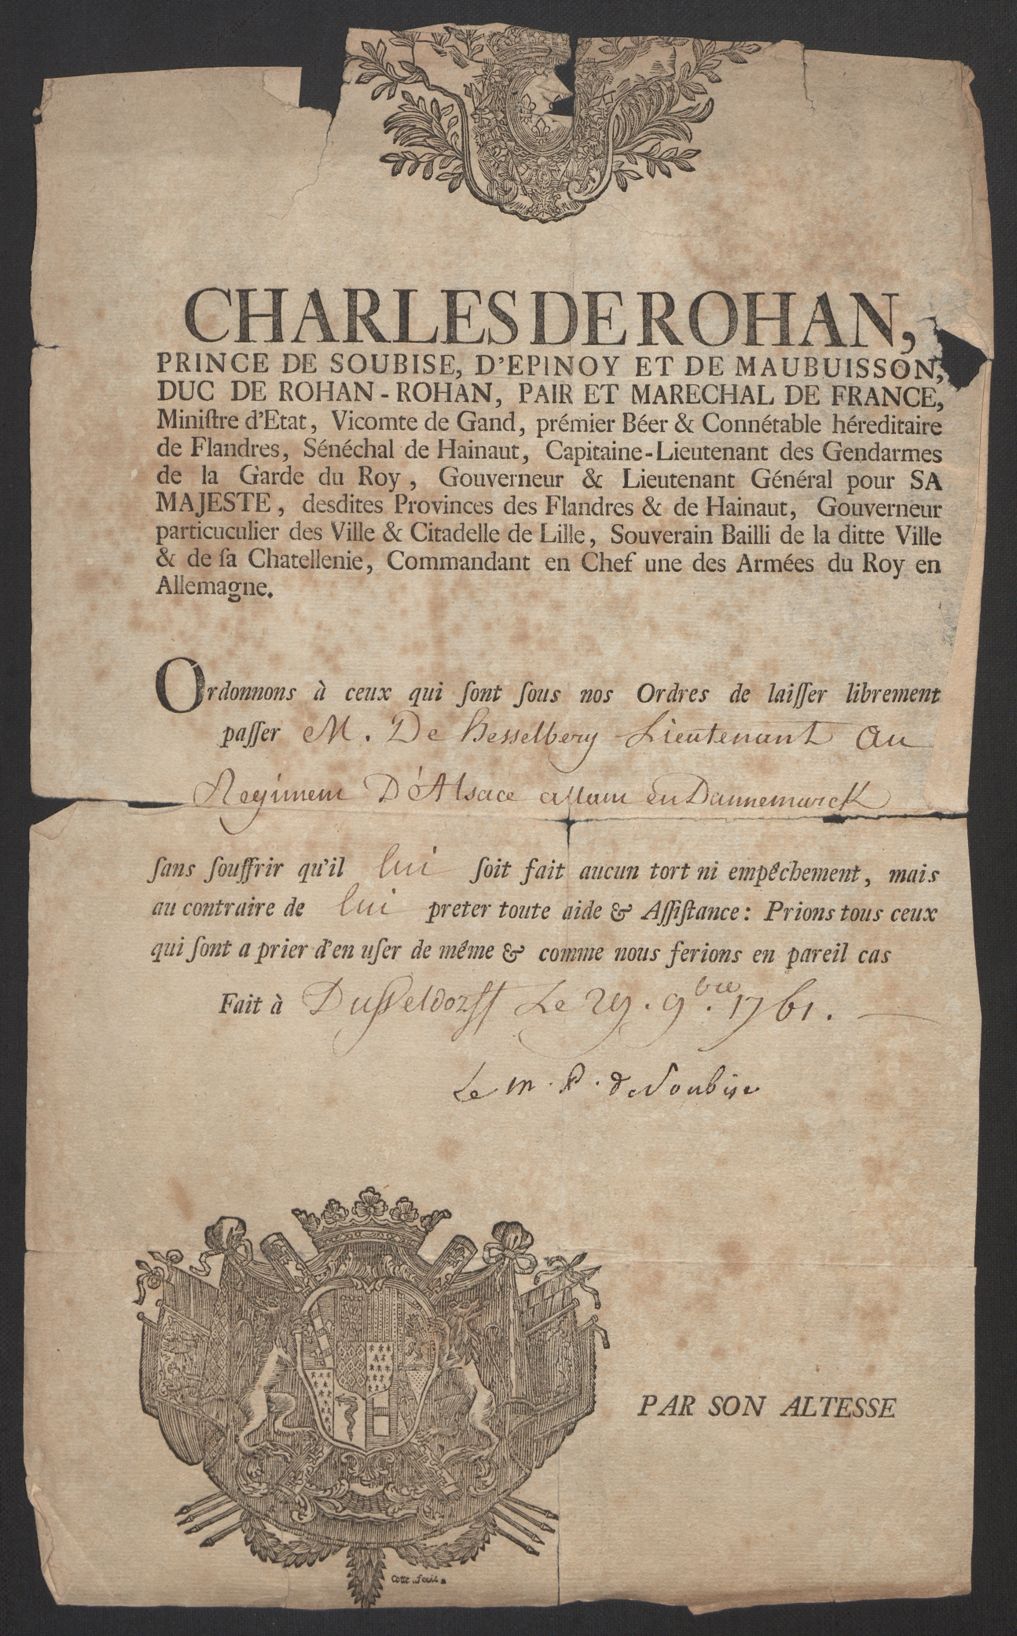 CHARLES DE ROHAN,
PRINCE DE SOUBISE, D'EPINOY ET DE MAUBUISSON,
DUC DE ROHAN-ROHAN, PAIR ET MARECHAL DE FRANCE,
Miniſtre d'Etat, Vicomte de Gand, prémier Béer & Connétable héreditaire
de Flandres, Sénéchal de Hainaut, Capitaine-Lieutenant des Gendarmes
de la Garde du Roy, Gouverneur & Lieutenant Général pour SA
MAJESTE, desdites Provinces des Flandres & de Hainaut, Gouverneur
particuculier des Ville & Citadelle de Lille, Souverain Bailli de la ditte Ville
& de ſa Chatellenie, Commandant en Chef une des Armées du Roy en
Allemagne.
Ordonnons à ceux qui ſont ſous nos Ordres de laiſſer librement
paſſer M. De Hesselberg Lieutenant au
Regiment D'Alsace allant en Dannemarck
ſans ſouffrir qu'il lui ſoit fait aucun tort ni empêchement, mais
au contraire de lui preter toute aide & Aſſiſtance: Prions tous ceux
qui ſont a prier d'en uſer de même & comme nous ferions en pareil cas
Fait à Dusseldorff Le 29. 9bre. 1761.
Le m. P. de Soubise
PAR SON ALTESSE